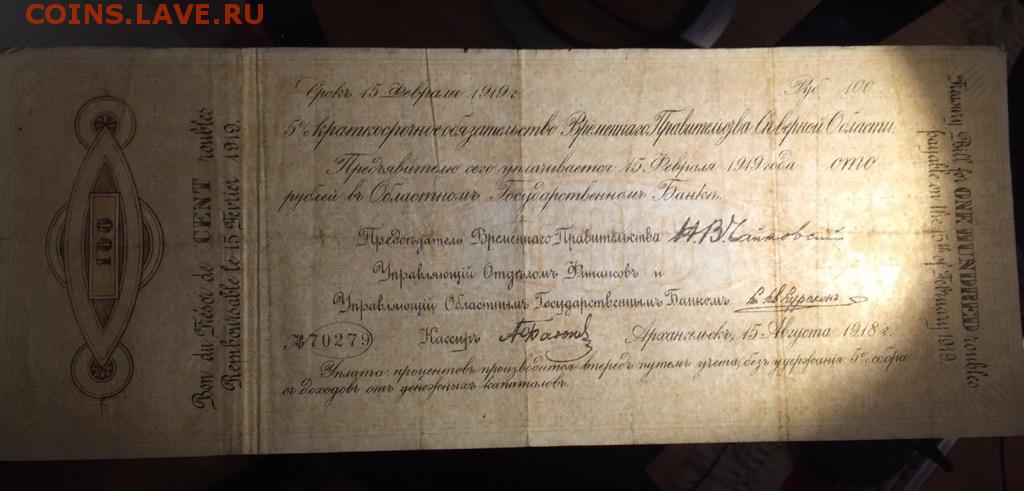 COINS.LAVE.RU
Срокъ 15 Февраля 1919 г.
Руб. 100
5% краткосрочное обязательство Временнаго Правительства Сѣверной Области.
Предъявителю сего уплачивается 15 Февраля 1919 года сто
рублей въ Областномъ Государственномъ Банкѣ.
Предсѣдатель Временнаго Правительства Н.В. Чайковскій
Управляющій Отдѣломъ Финансовъ и
Управляющій Областнымъ Государственнымъ Банкомъ Куракинъ
№ 70279
Кассиръ
Архангельскъ, 15 Августа 1918 г.
Уплата процентовъ производится впередъ путемъ учета, безъ удержанія 5% сбора
съ доходовъ отъ денежныхъ капиталовъ.
100
Bon du Trésor de CENT roubles
Remboursable le 15 Février 1919.
Treasury Bill for ONE HUNDRED roubles
payable on the 15th of February 1919.